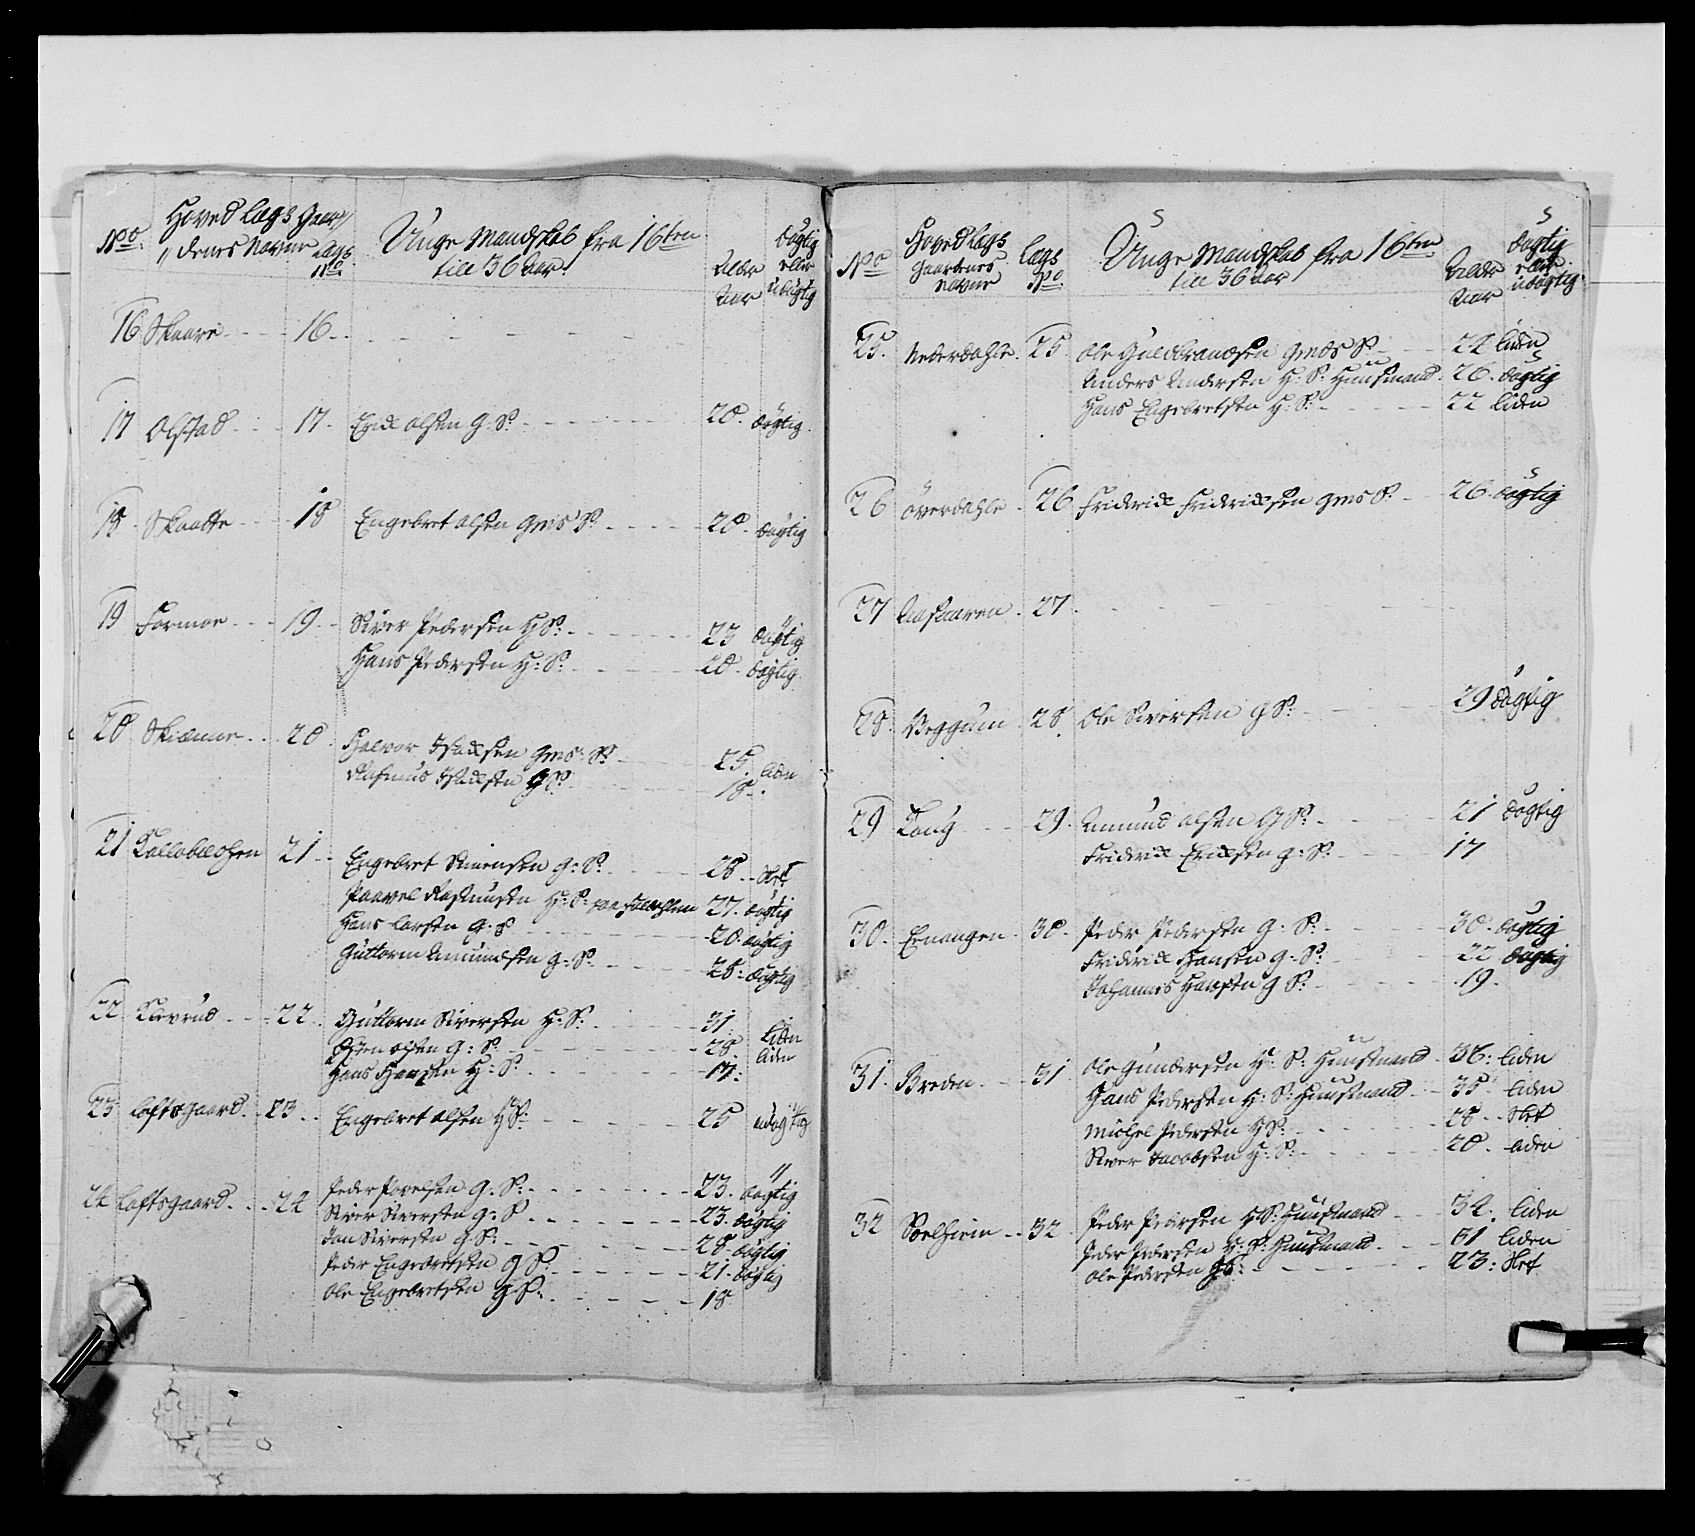 No. Hoved Lægs Gaar„
„denes Navne Lægs No. Unge Mandskab fra 16ten till 36 Aar Alder Aar dögtig eller udögtig
16 Skaare 16
17 Olstad 17 Erik Olsen G. S. 20 dögtig
18 Skaatte 18 Engebret Olsen Gmds S. 20 dögtig
19 Formoe 19 Siver Pedersen H S: 23 dögtig
Hans Pedersen H: S: 20 dögtig
20 Skiænne 20 Halvor Isaksen Gms: S: 25 liden
Rasmus Isaksen G S: 18
21 21 Engebret Simensen G: S: 28 Slet
Paavel Rasmusen H: S: 27 dögtig
Hans Larsen G: S 20 dögtig
Guttorm Amundsen G: S: 28 dögtig
22 Klevrud 22 Guttorm Siversen H: S: 31 liden
Olsen G: S: 28 liden
Hans Hansen H: S: 17
23 Loftsgaard 23 Engebret Olsen H S: 25 udögtig
24 Loftsgaard 24 Peder Povelsen G: S: 23 dögtig
Siver Siversen G: S 23 dögtig
Jon Siversen G: S: 28 dögtig
Peder Engebretsen G S: 21 dögtig
Ole Engebretsen G S: 18
No Hovedlægs Gaardenes Navne Lægs No. Unge Mandskab fra 16ten till 36 aar Alder Aar dögtig eller udögtig
25 Nederdahle 25 Ole Guldbrandsen Gmds S. 22 liden
Anders Andersen H: S: Huusmand 26 dögtig
Hans Engebretsen H: S: 22 liden
26 Överdahle 26 Friderik Frideriksen Gms S. 26 dögtig
27 Aasaaren 27
28 Veggum 28 Ole Siversen G S: 29 dögtig
29 Toug 29 Amund Olsen G S: 21 dögtig
Friderik Eriksen G: S: 17
30 Ernangen 30 Peder Pedersen G: S: 30 dögtig
Friderik Hansen G: S: 22 dögtig
Johannes Hansen G S: 19
31 Breden 31 Ole Gundersen H: S: Huusmand 36 liden
Hans Pedersen H: S: Huusmand 35 liden
Michel Pedersen H S: 28 Slet
Siver Jacobsen H: S: 20 liden
32 Soelhiem 32 Peder Pedersen H S: Huusmand 34 liden
Peder Pedersen H: S: Huusmand 31 liden
Ole Pedersen G S: 23 Slet